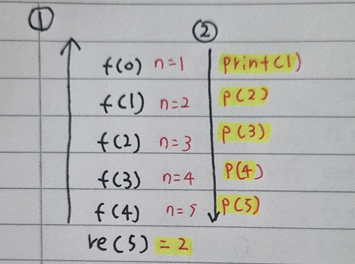 ① ②
f(0) n=1 print(1)
f(1) n=2 p(2)
f(2) n=3 p(3)
f(3) n=4 p(4)
f(4) n=5 p(5)
re(5) = 2